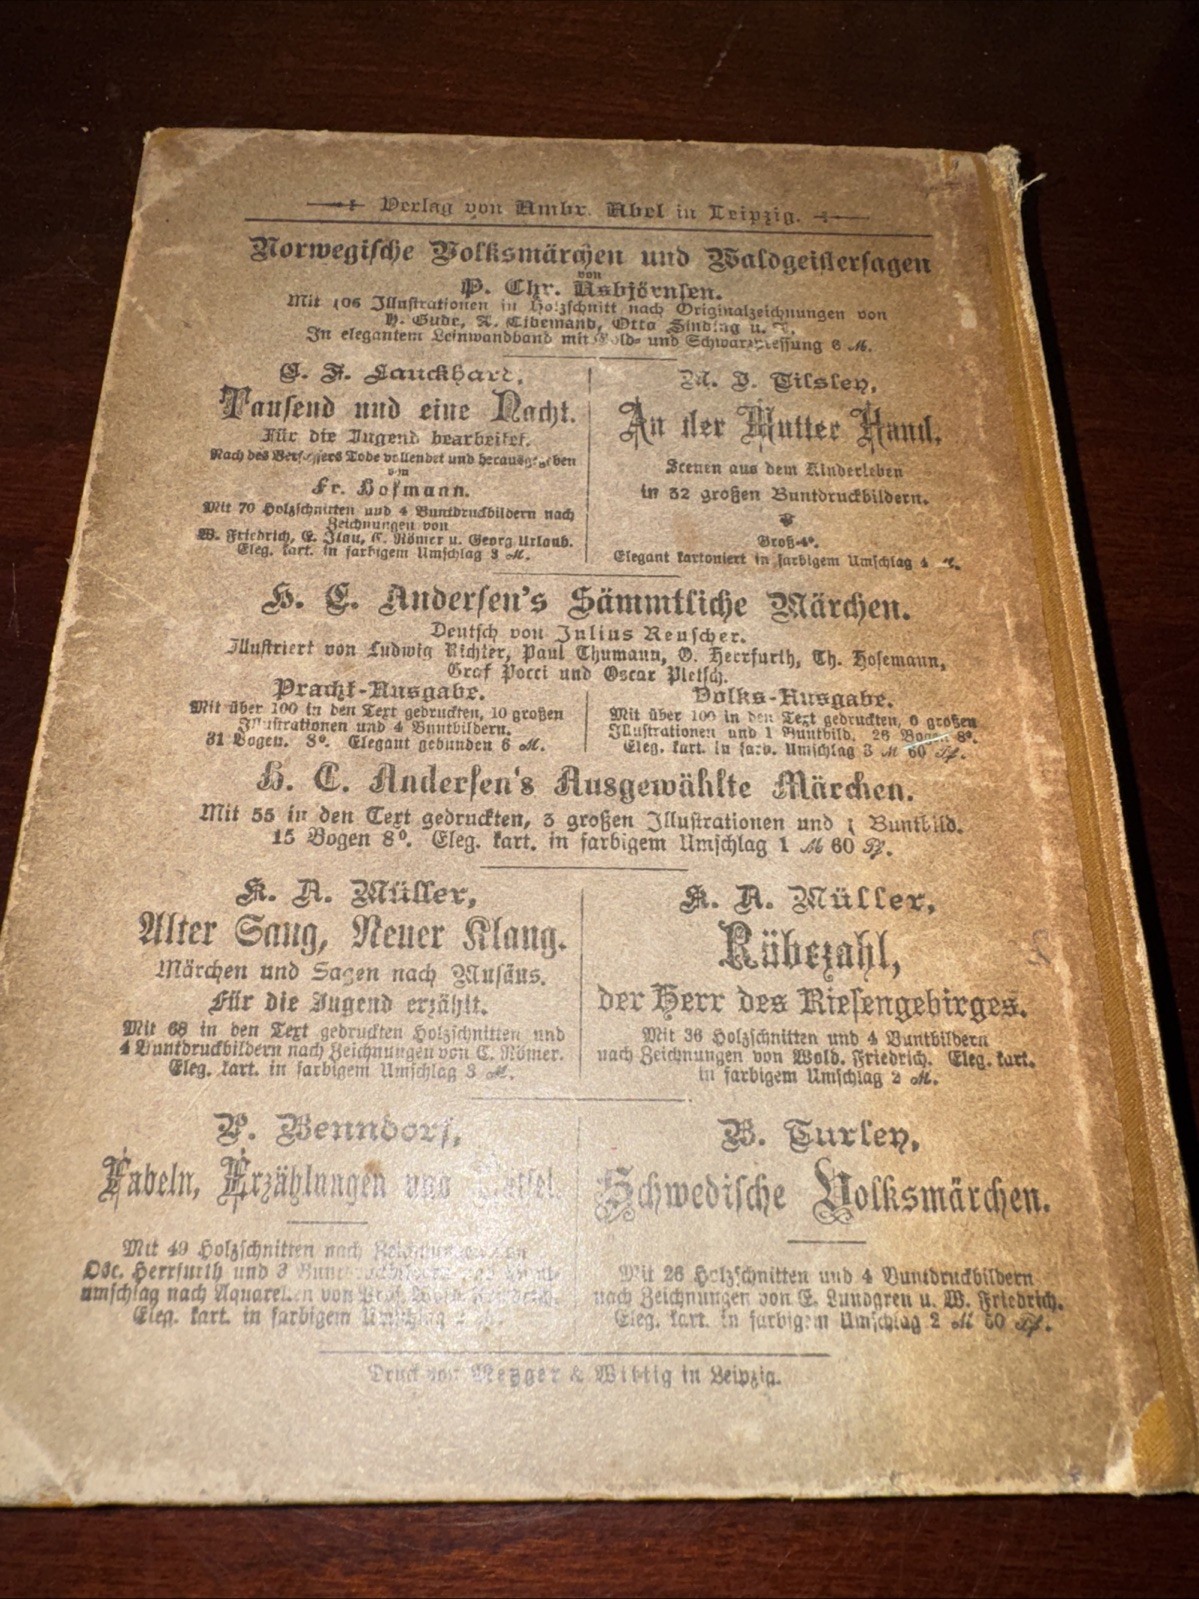 Verlag von Ambr. Abel in Leipzig.
Norwegische Volksmärchen und Waldgeistersagen
von
P. Chr. Asbjörnsen.
Mit 106 Illustrationen in Holzschnitt nach Originalzeichnungen von
H. Gude, A. Tidemand, Otto Sinding u. A.
In elegantem Leinwandband mit Gold- und Schwarzpressung 6 M.
C. F. Lauckhard,
Tausend und eine Nacht.
Für die Jugend bearbeitet.
Nach des Verfassers Tode vollendet und herausgegeben
von
Fr. Hofmann.
Mit 70 Holzschnitten und 4 Buntdruckbildern nach
Zeichnungen von
W. Friedrich, E. Klau, C. Römer u. Georg Urlaub.
Eleg. kart. in farbigem Umschlag 3 M.
M. J. Tilsley,
An der Mutter Hand.
Scenen aus dem Kinderleben
in 32 großen Buntdruckbildern.
Groß-4°.
Elegant kartoniert in farbigem Umschlag 4 M.
H. C. Andersen's Sämmtliche Märchen.
Deutsch von Julius Reuscher.
Illustriert von Ludwig Richter, Paul Thumann, O. Herrfurth, Th. Hosemann,
Graf Pocci und Oscar Pletsch.
Pracht-Ausgabe.
Mit über 100 in den Text gedruckten, 10 großen
Illustrationen und 4 Buntbildern.
31 Bogen. 8°. Elegant gebunden 6 M.
Volks-Ausgabe.
Mit über 100 in den Text gedruckten, 6 großen
Illustrationen und 1 Buntbild. 26 Bogen 8°.
Eleg. kart. in farb. Umschlag 3 M 60 Pf.
H. C. Andersen's Ausgewählte Märchen.
Mit 55 in den Text gedruckten, 3 großen Illustrationen und 1 Buntbild.
15 Bogen 8°. Eleg. kart. in farbigem Umschlag 1 M 60 Pf.
K. A. Müller,
Alter Sang, Neuer Klang.
Märchen und Sagen nach Musäus.
Für die Jugend erzählt.
Mit 68 in den Text gedruckten Holzschnitten und
4 Buntdruckbildern nach Zeichnungen von C. Römer.
Eleg. kart. in farbigem Umschlag 3 M.
K. A. Müller,
Rübezahl,
der Herr des Riesengebirges.
Mit 36 Holzschnitten und 4 Buntbildern
nach Zeichnungen von Wold. Friedrich. Eleg. kart.
in farbigem Umschlag 2 M.
P. Benndorf,
Fabeln, Erzählungen und Rätsel.
Mit 49 Holzschnitten nach Zeichnungen von
Osc. Herrfurth und 3
umschlag nach Aquarellen von Prof. Wold. Friedrich.
Eleg. kart. in farbigem Umschlag 2 M.
B. Turley,
Schwedische Volksmärchen.
Mit 26 Holzschnitten und 4 Buntdruckbildern
nach Zeichnungen von E. Lundgren u. W. Friedrich.
Eleg. kart. in farbigem Umschlag 2 M 50 Pf.
Druck von Metzger & Wittig in Leipzig.